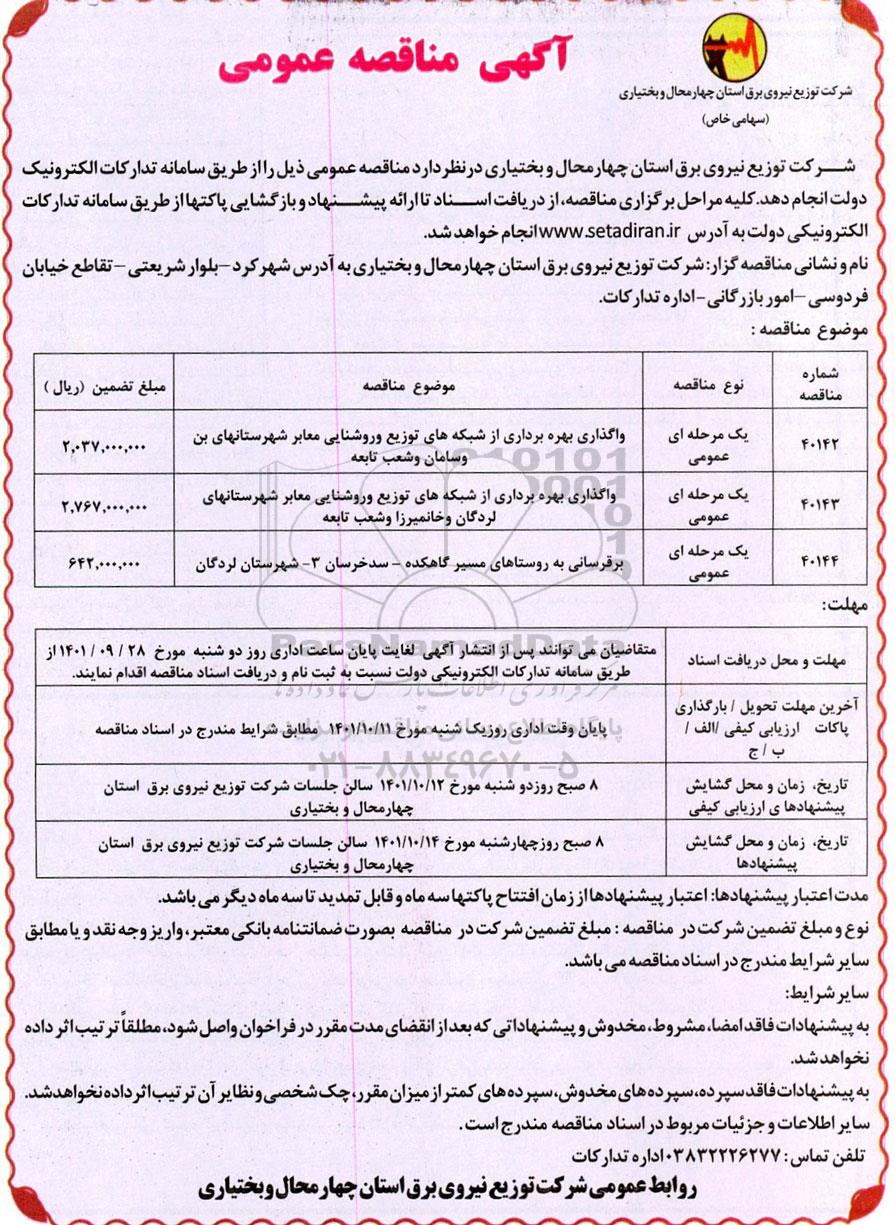 آگهی مناقصه عمومی
شرکت توزیع نیروی برق استان چهارمحال و بختیاری
(سهامی خاص)
شرکت توزیع نیروی برق استان چهارمحال و بختیاری در نظر دارد مناقصه عمومی ذیل را از طریق سامانه تدارکات الکترونیک
دولت انجام دهد. کلیه مراحل برگزاری مناقصه، از دریافت اسناد تا ارائه پیشنهاد و بازگشایی پاکتها از طریق سامانه تدارکات
الکترونیکی دولت به آدرس www.setadiran.ir انجام خواهد شد.
نام و نشانی مناقصه گزار: شرکت توزیع نیروی برق استان چهارمحال و بختیاری به آدرس شهرکرد – بلوار شریعتی – تقاطع خیابان
فردوسی – امور بازرگانی - اداره تدارکات.
موضوع مناقصه :
شماره مناقصه
نوع مناقصه
موضوع مناقصه
مبلغ تضمین (ریال )
۴۰۱۴۲
یک مرحله ای
عمومی
واگذاری بهره برداری از شبکه های توزیع وروشنایی معابر شهرستانهای بن
وسامان وشعب تابعه
۲,۰۳۷,۰۰۰,۰۰۰
۴۰۱۴۳
یک مرحله ای
عمومی
واگذاری بهره برداری از شبکه های توزیع وروشنایی معابر شهرستانهای
لردگان وخانمیرزا وشعب تابعه
۲,۷۶۷,۰۰۰,۰۰۰
۴۰۱۴۴
یک مرحله ای
عمومی
برقرسانی به روستاهای مسیر گاهکده - سدخرسان ۳- شهرستان لردگان
۶۴۲,۰۰۰,۰۰۰
مهلت:
مهلت و محل دریافت اسناد
متقاضیان می توانند پس از انتشار آگهی لغایت پایان ساعت اداری روز دو شنبه مورخ ۲۸ / ۰۹ / ۱۴۰۱ از
طریق سامانه تدارکات الکترونیکی دولت نسبت به ثبت نام و دریافت اسناد مناقصه اقدام نمایند.
آخرین مهلت تحویل / بارگذاری
پاکات ارزیابی کیفی /الف /
ب / ج
پایان وقت اداری روزیک شنبه مورخ ۱۴۰۱/۱۰/۱۱ مطابق شرایط مندرج در اسناد مناقصه
تاریخ، زمان و محل گشایش
پیشنهادها ی ارزیابی کیفی
۸ صبح روزدو شنبه مورخ ۱۴۰۱/۱۰/۱۲ سالن جلسات شرکت توزیع نیروی برق استان
چهارمحال و بختیاری
تاریخ، زمان و محل گشایش
پیشنهادها
۸ صبح روزچهارشنبه مورخ ۱۴۰۱/۱۰/۱۴ سالن جلسات شرکت توزیع نیروی برق استان
چهارمحال و بختیاری
مدت اعتبار پیشنهادها: اعتبار پیشنهادها از زمان افتتاح پاکتها سه ماه و قابل تمدید تا سه ماه دیگر می باشد.
نوع و مبلغ تضمین شرکت در مناقصه : مبلغ تضمین شرکت در مناقصه بصورت ضمانتنامه بانکی معتبر، واریز وجه نقد و یا مطابق
سایر شرایط مندرج در اسناد مناقصه می باشد.
سایر شرایط:
به پیشنهادات فاقد امضا، مشروط، مخدوش و پیشنهاداتی که بعد از انقضای مدت مقرر در فراخوان واصل شود، مطلقاً ترتیب اثر داده
نخواهد شد.
به پیشنهادات فاقد سپرده، سپرده های مخدوش، سپرده های کمتر از میزان مقرر، چک شخصی و نظایر آن ترتیب اثر داده نخواهد شد.
سایر اطلاعات و جزئیات مربوط در اسناد مناقصه مندرج است.
تلفن تماس: ۰۳۸۳۲۲۲۶۲۷۷ اداره تدارکات
روابط عمومی شرکت توزیع نیروی برق استان چهارمحال و بختیاری
ParsNamadData
۰۲۱-۸۸۳۴۹۶۷۰-۵